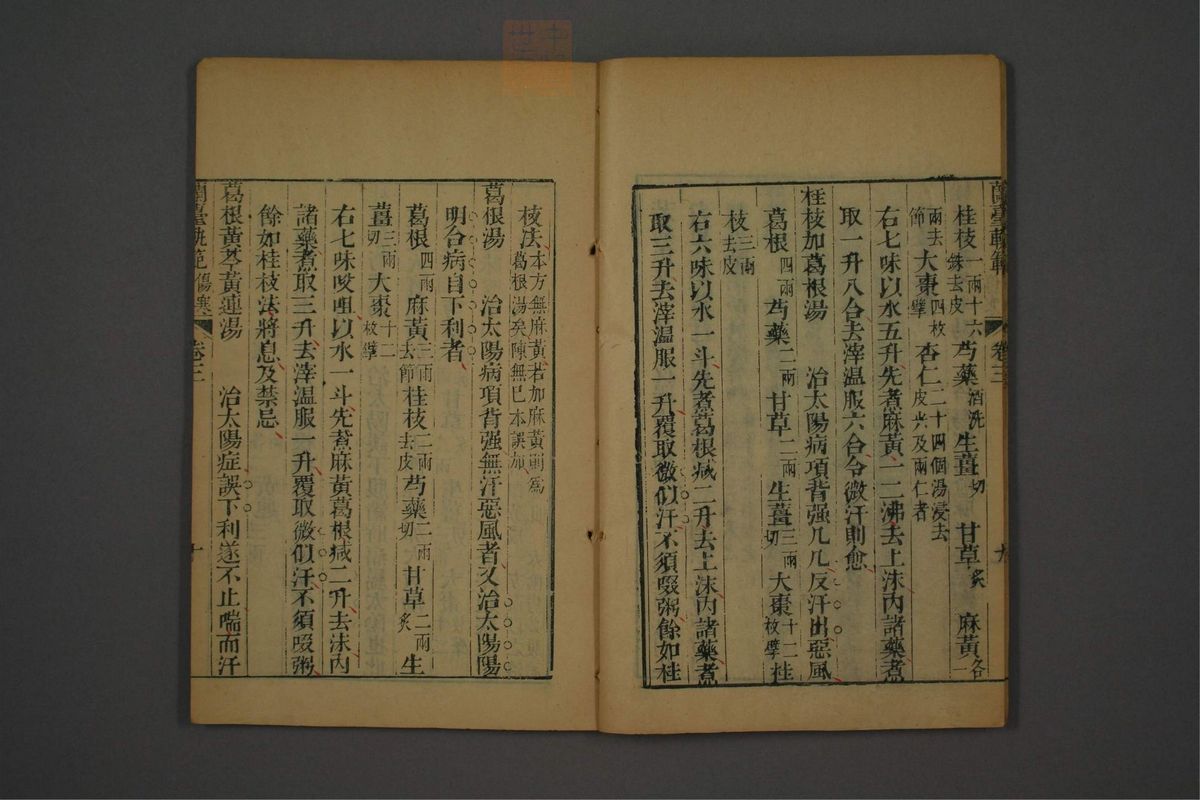 蘭臺軌範 卷三 九
桂枝一兩十六銖去皮 芍藥酒洗 生薑切 甘草炙 麻黃各一
兩去節 大棗四枚擘 杏仁二十四個湯浸去皮尖及兩仁者
右七味以水五升先煮麻黃一二沸去上沫內諸藥煮
取一升八合去滓溫服六合令微汗則愈
桂枝加葛根湯 治太陽病項背强几几反汗出惡風
葛根四兩 芍藥二兩 甘草二兩 生薑三兩切 大棗十二枚擘 桂
枝三兩去皮
右六味以水一斗先煮葛根减二升去上沫內諸藥煮
取三升去滓溫服一升覆取微似汗不須啜粥餘如桂
枝法本方無麻黃若加麻黃則爲葛根湯矣陳無巳本誤加
葛根湯 治太陽病項背强無汗惡風者又治太陽陽
明合病自下利者
葛根四兩 麻黃三兩去節 桂枝二兩去皮 芍藥二兩切 甘草二兩炙 生
薑三兩切 大棗十二枚擘
右七味㕮咀以水一斗先煮麻黃葛根减二升去沫內
諸藥煮取三升去滓溫服一升覆取微似汗不須啜粥
餘如桂枝法將息及禁忌
葛根黃芩黃連湯 治太陽症誤下利遂不止喘而汗
蘭臺軌範傷寒 卷三 十